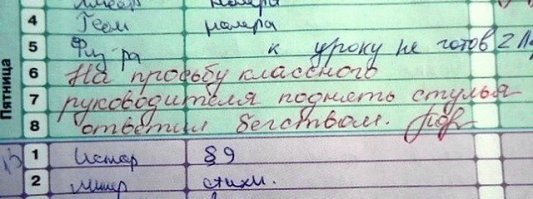 4 Геом номера
5 Физ-ра к уроку не готов 2
6 На просьбу классного
7 руководителя поднять стулья
8 ответил бегством.
Пятница
1 Истор §9
2 Литер стихи.